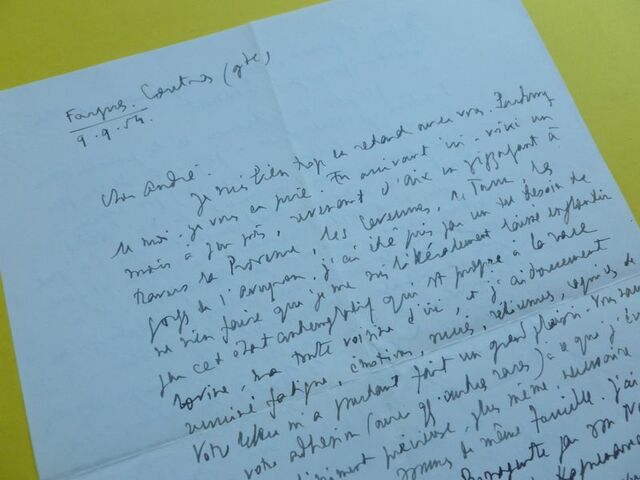 Fargues. Coutras (gde)
9.9.54.
Cher André.
Je suis bien trop en retard avec vous. Pardonnez
le moi - je vous en prie. En arrivant ici - voici un
mois à peu près, revenant d'Aix en zigzagant à
travers la Provence, les Cévennes, le Tarn, les
gorges de l'Aveyron, j'ai été pris par un tel besoin de
ne rien faire que je me suis libéralement laissé
par cet état contemplatif qui est propre à la race
bovine, ma toute voisine d'ici, et j'ai doucement
ruminé fatigue, émotions, rêveries,
Votre lettre m'a pourtant fait un grand plaisir. Vous savez
votre adhésion (avec qq. autres rares) à ce que j'
précieuse, plus même, nécessaire
sommes de même famille. j'ai
par son